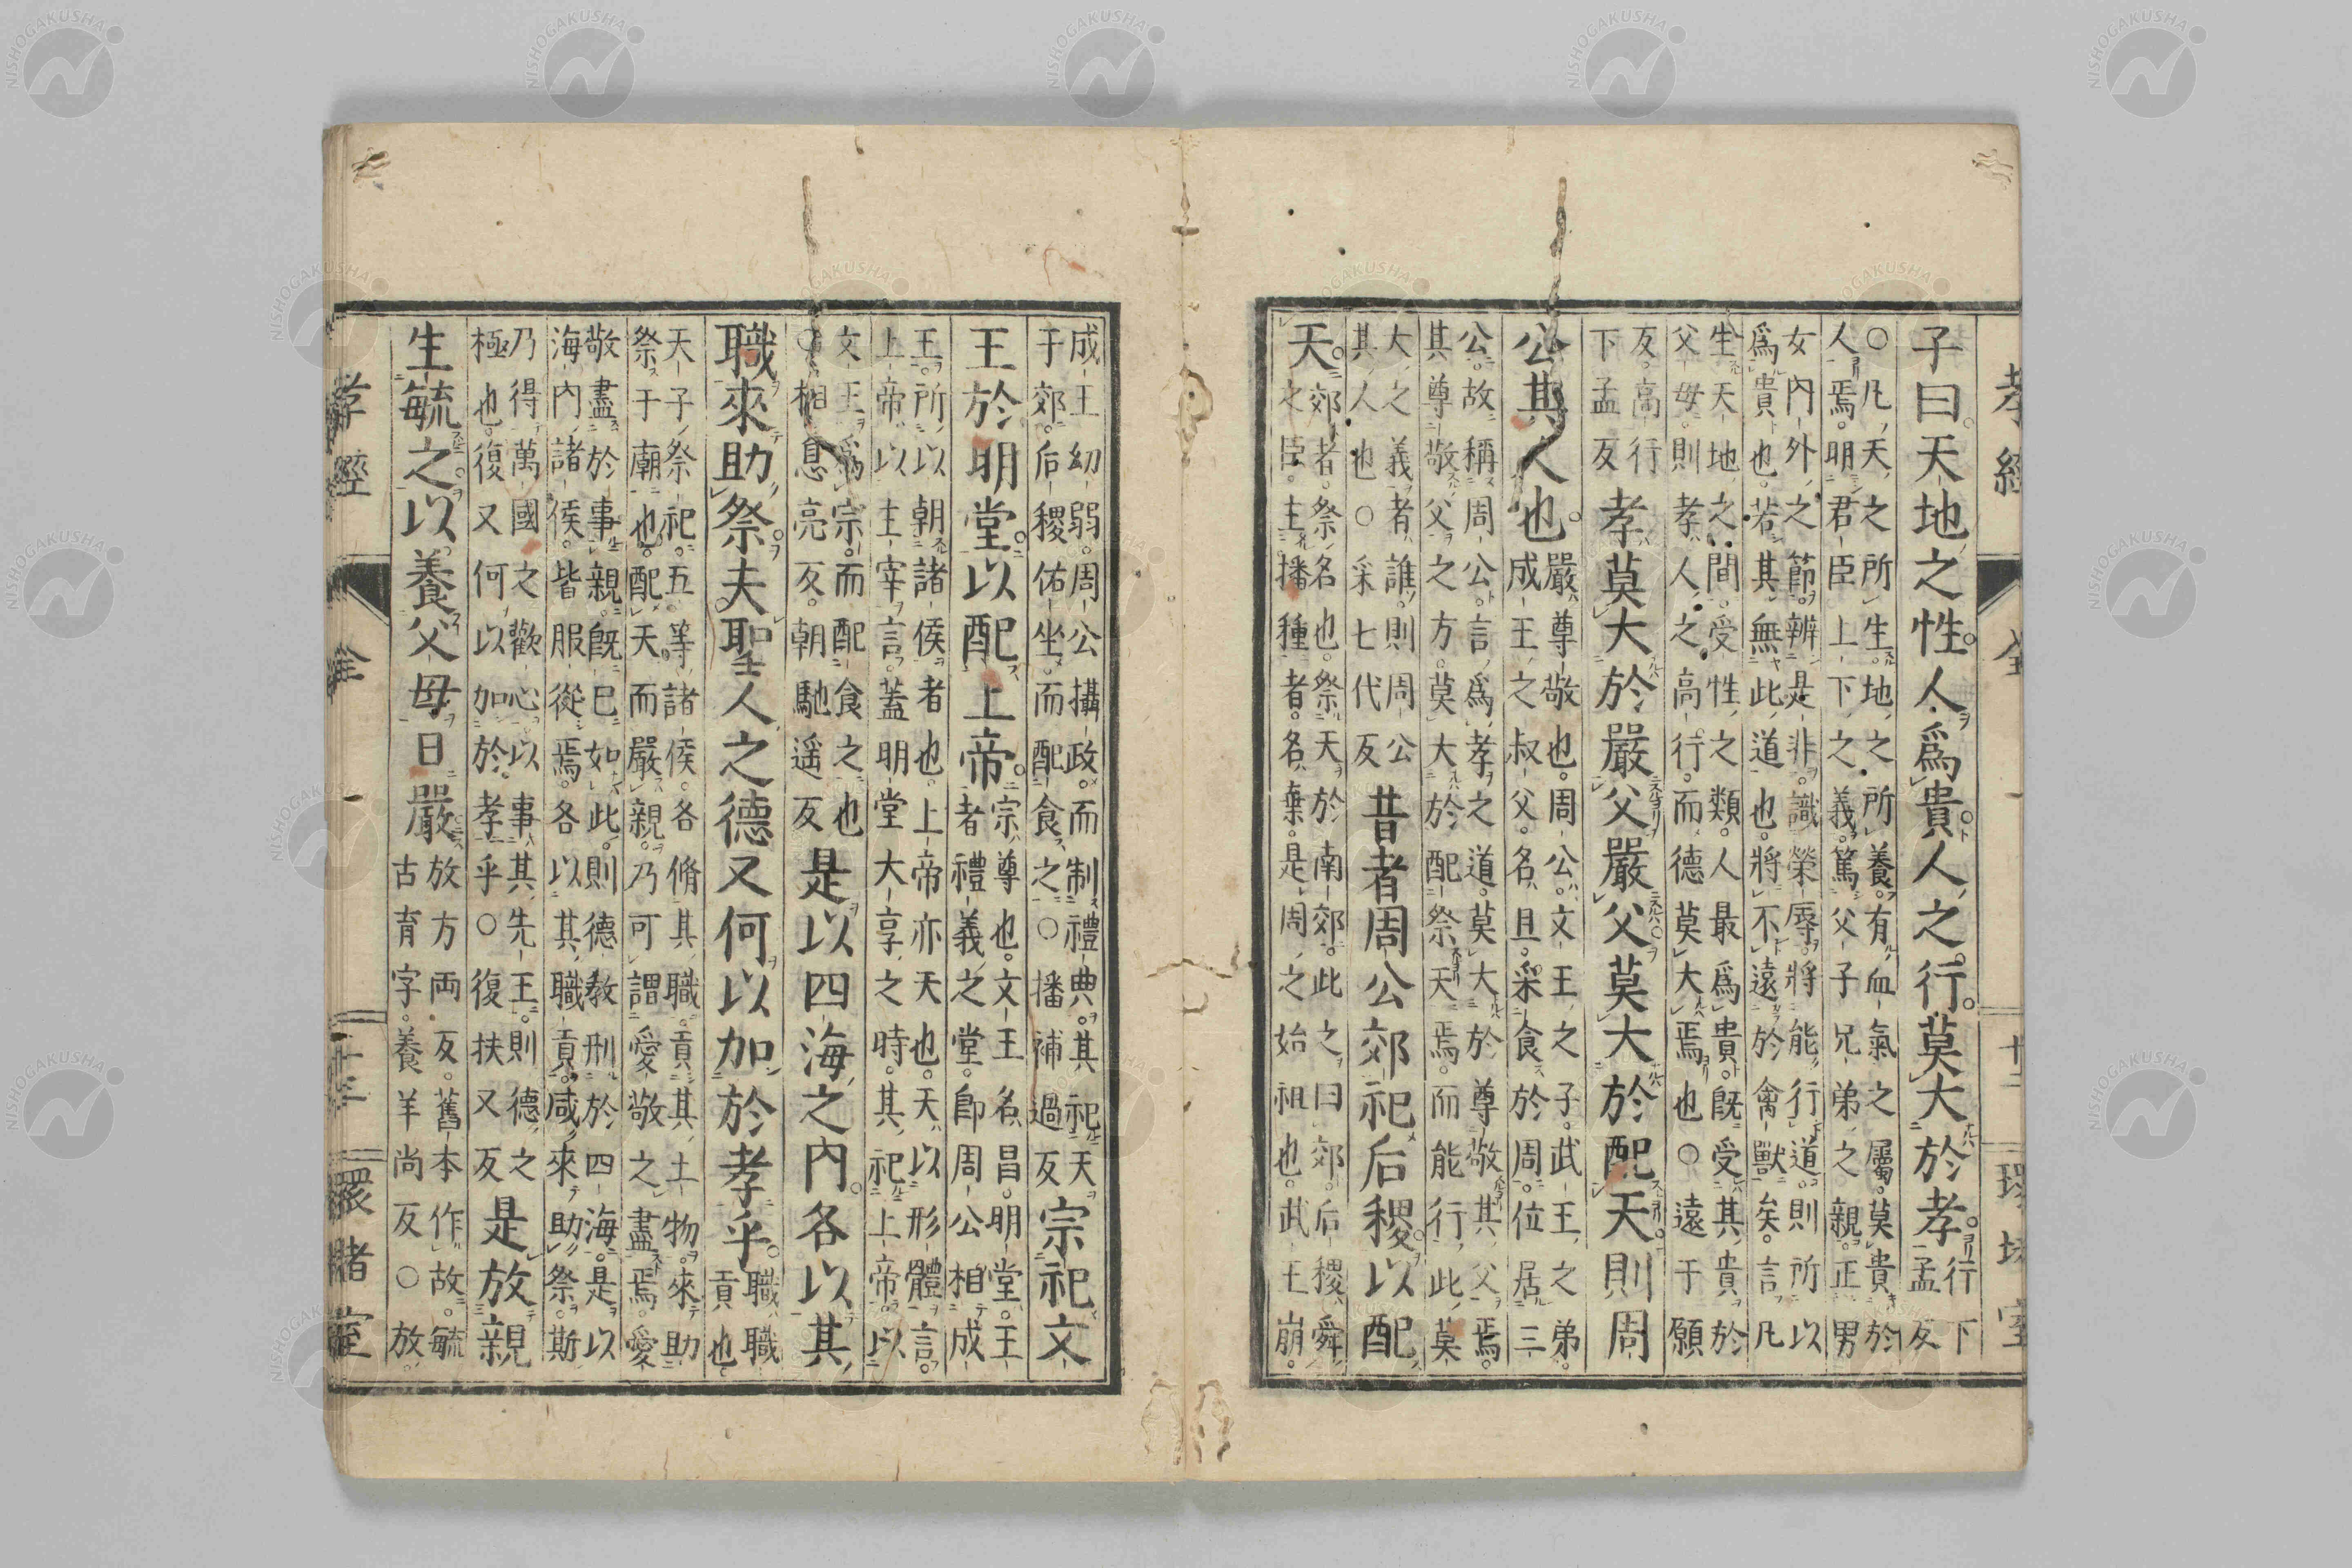 孝經
全
十二
環堵室
子曰天地之性人爲貴人之行莫大於孝行下孟反
○凡天之所生地之所養有血氣之屬莫貴於
人焉明君臣上下之義篤父子兄弟之親正男
女內外之節辨是非識榮辱將能行道則所以
爲貴也若其無此道也將不遠於禽獸矣言凡
生天地之間受性之類人最爲貴旣受其貴於
父母則孝人之高行而德莫大焉也○遠于願
反高行
下孟反
孝莫大於嚴父嚴父莫大於配天則周
公其人也
嚴尊敬也周公文王之子武王之弟
成王之叔父名旦采食於周位居三
公故稱周公言爲孝之道莫大於尊敬其父焉
其尊敬父之方莫大於配祭天焉而能行此莫
大之義者誰則周公
其人也○采七代反
昔者周公郊祀后稷以配
天
郊者祭名也祭天於南郊此之曰郊后稷舜
之臣主播種者名棄是周之始祖也武王崩
成王幼弱周公攝政而制禮典其祀天
于郊后稷佑坐而配食之○播補過反
宗祀文
王於明堂以配上帝
宗尊也文王名昌明堂王
者禮義之堂卽周公相成
王所以朝諸侯者也上帝亦天也天以形體言
上帝以主宰言蓋明堂大享之時其祀上帝以
文王爲宗而配食之也
○相息亮反朝馳遥反
是以四海之內各以其
職來助祭夫聖人之德又何以加於孝乎
職職
貢也
天子祭祀五等諸侯各脩其職貢其土物來助
祭于廟也配天而嚴親乃可謂愛敬之盡焉愛
敬盡於事親旣已如此則德教刑於四海是以
海內諸侯皆服從焉各以其職貢咸來助祭斯
乃得萬國之歡心以事其先王則德之
極也復又何以加於孝乎○復扶又反
是放親
生毓之以養父母日嚴
放方両反舊本作故毓
古育字養羊尚反○放
孝經
全
十三
環堵室